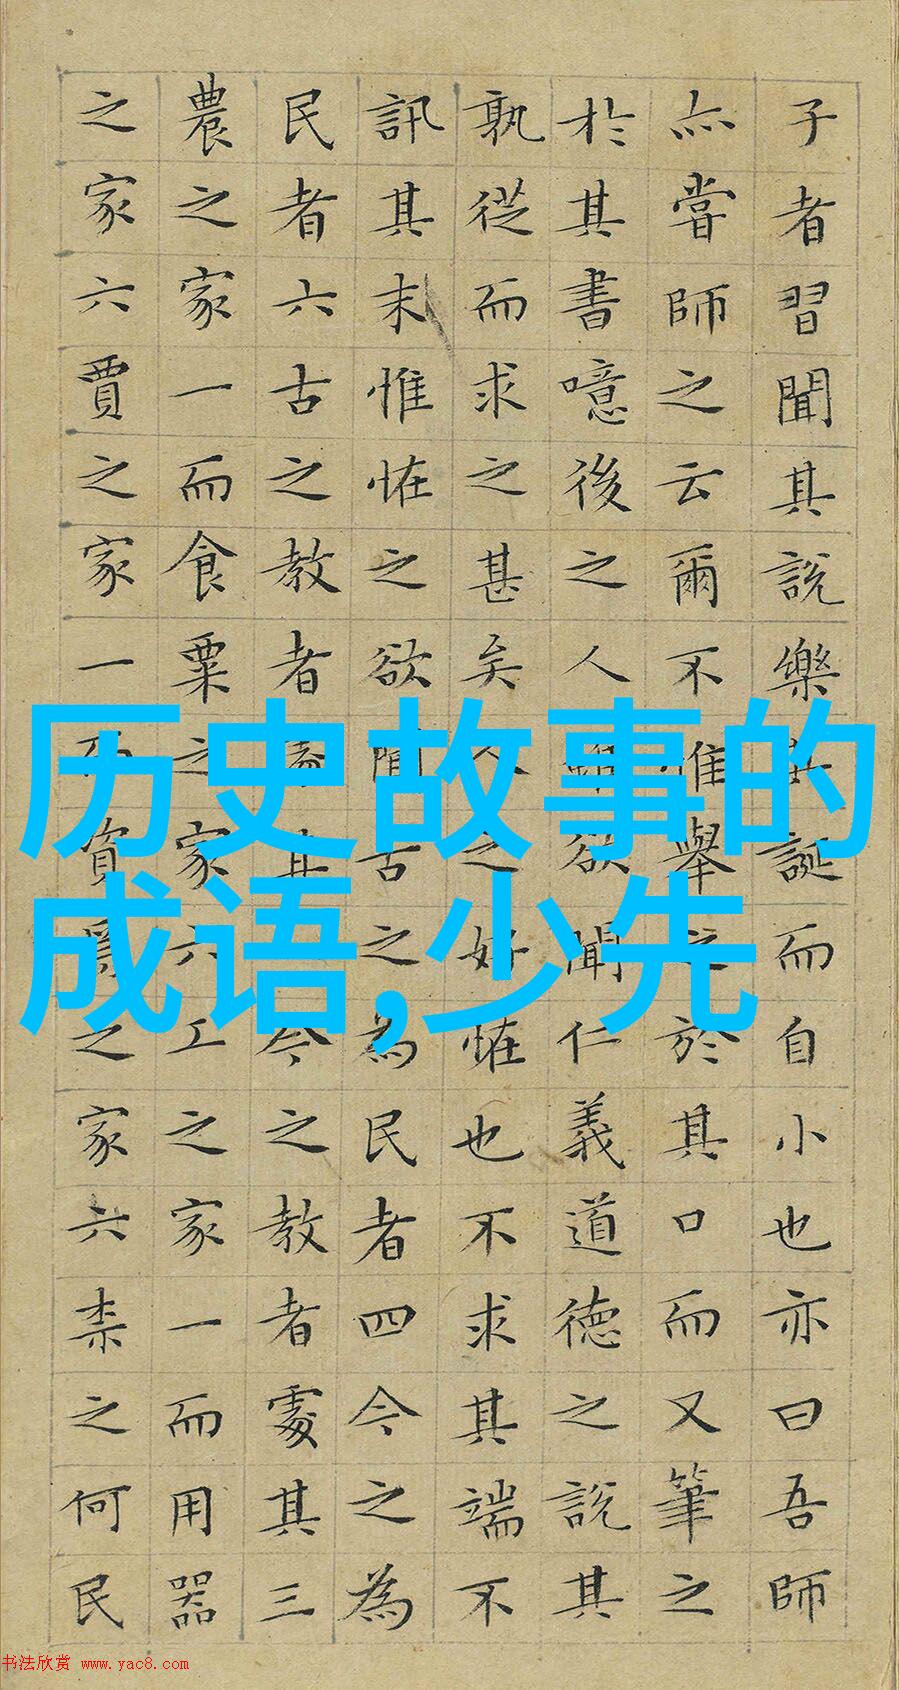 子者習聞其說樂其誕而自小也亦曰吾師
亦嘗師之云爾不惟舉之於其口而又筆之
於其書噫後之人雖欲聞仁義道德之說其
孰從而求之甚矣人之好恠也不求其端不
訊其末惟恠之欲聞古之為民者四今之為
民者六古之教者處其今之教者處其三
農之家一而食粟之家六工之家一而用器
之家六賈之家一而資焉之家六柰之何民
历史故事的
成语,少先
书法欣赏 www.yac8.com